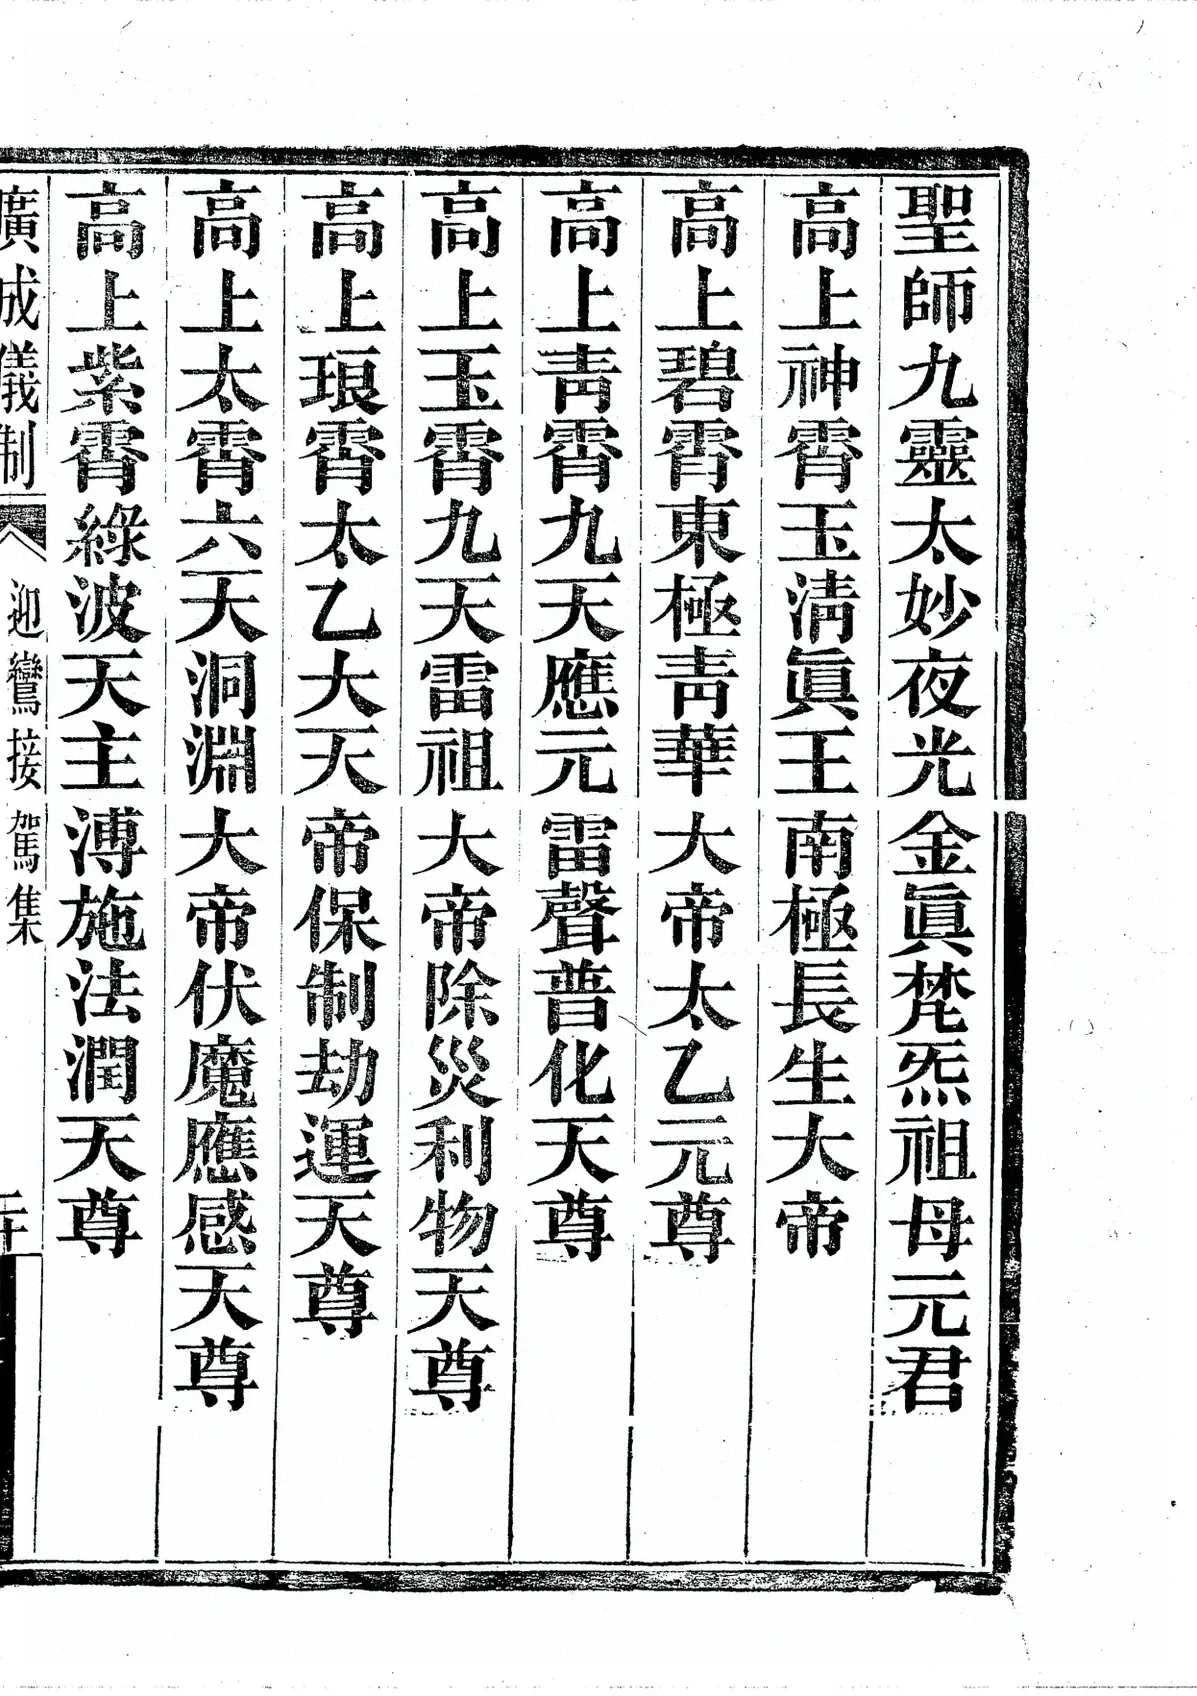 聖師九靈太妙夜光金眞梵炁祖母元君
高上神霄玉淸眞王南極長生大帝
高上碧霄東極靑華大帝太乙元尊
高上靑霄九天應元雷聲普化天尊
高上玉霄九天雷祖大帝除災利物天尊
高上琅霄太乙大天帝保制劫運天尊
高上太霄六天洞淵大帝伏魔應感天尊
高上紫霄綠波天主溥施法潤天尊
廣成儀制 迎鸞接駕集